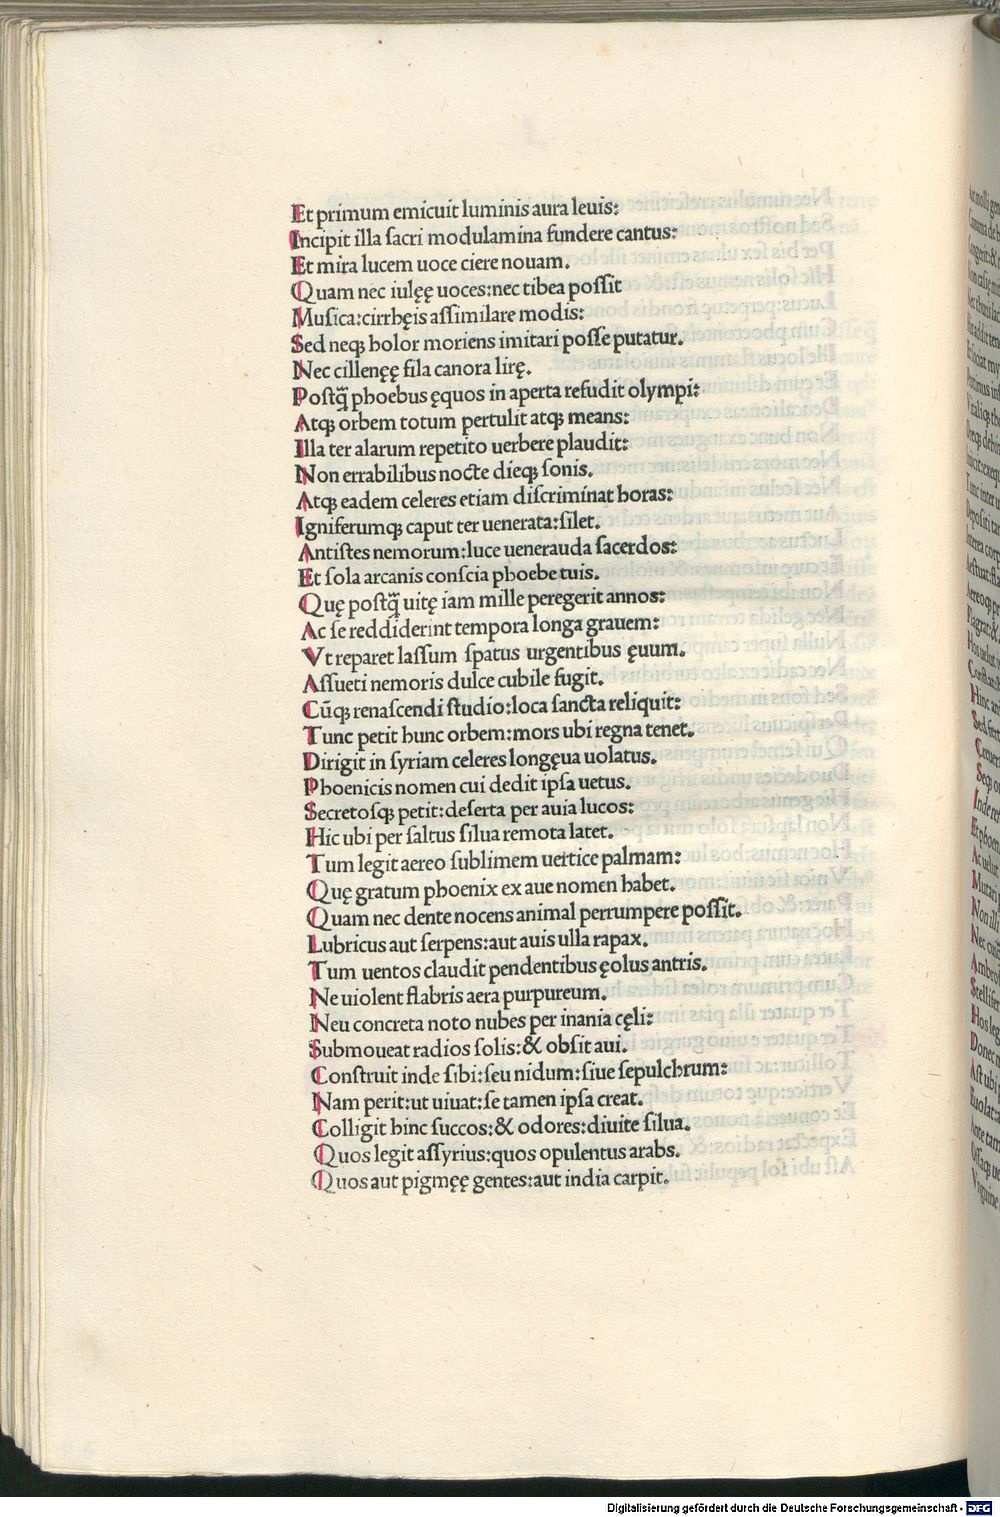 Et primum emicuit luminis aura leuis:
Incipit illa sacri modulamina fundere cantus:
Et mira lucem uoce ciere nouam.
Quam nec iulęę uoces:nec tibea possit
Musica:cirrhęis assimilare modis:
Sed neqꝫ holor moriens imitari posse putatur.
Nec cillenęę fila canora lirę.
Postq̃ phoebus ęquos in aperta refudit olympi:
Atqꝫ orbem totum pertulit atqꝫ means:
Illa ter alarum repetito uerbere plaudit:
Non errabilibus nocte dieqꝫ sonis.
Atqꝫ eadem celeres etiam discriminat horas:
Igniferumqꝫ caput ter uenerata:silet.
Antistes nemorum:luce uenerauda sacerdos:
Et sola arcanis conscia phoebe tuis.
Quę postq̃ uitę iam mille peregerit annos:
Ac se reddiderint tempora longa grauem:
Vt reparet lassum spatus urgentibus ęuum.
Assueti nemoris dulce cubile fugit.
Cũqꝫ renascendi studio:loca sancta reliquit:
Tunc petit hunc orbem:mors ubi regna tenet.
Dirigit in syriam celeres longęua uolatus.
Phoenicis nomen cui dedit ipsa uetus.
Secretosqꝫ petit:deserta per auia lucos:
Hic ubi per saltus silua remota latet.
Tum legit aereo sublimem uertice palmam:
Quę gratum phoenix ex aue nomen habet.
Quam nec dente nocens animal perrumpere possit.
Lubricus aut serpens:aut auis ulla rapax.
Tum uentos claudit pendentibus ęolus antris.
Ne uiolent flabris aera purpureum.
Neu concreta noto nubes per inania cęli:
Submoueat radios solis:& obsit aui.
Construit inde sibi:seu nidum:siue sepulchrum:
Nam perit:ut uiuat:se tamen ipsa creat.
Colligit hinc succos:& odores:diuite silua.
Quos legit assyrius:quos opulentus arabs.
Quos aut pigmęę gentes:aut india carpit.
Digitalisierung gefördert durch die Deutsche Forschungsgemeinschaft - DFG